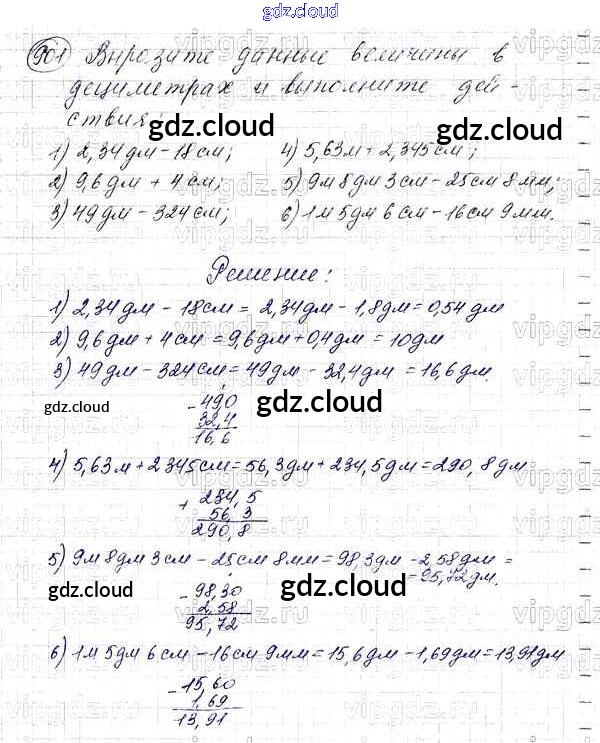 gdz.cloud
901 Вырозите данные величены в
дециметрах и выполните дей-
ствия:
gdz.cloud
1) 2,34 дм - 18 см; 4) 5,63 м + 2,345 см;
2) 9,6 дм + 4 см; 5) 9 м 8 дм 3 см - 25 см 8 мм;
3) 49 дм - 324 см; 6) 1 м 5 дм 6 см - 16 см 9 мм.
Решение:
1) 2,34 дм - 18 см = 2,34 дм - 1,8 дм = 0,54 дм
2) 9,6 дм + 4 см = 9,6 дм + 0,4 дм = 10 дм
3) 49 дм - 324 см = 49 дм - 32,4 дм = 16,6 дм.
- 49,0
32,4
16,6
gdz.cloud gdz.cloud
4) 5,63 м + 2345 см = 56,3 дм + 234,5 дм = 290,8 дм
+ 234,5
56,3
290,8
5) 9 м 8 дм 3 см - 25 см 8 мм = 98,3 дм - 2,58 дм =
= 95,72 дм.
- 98,30
2,58
95,72
gdz.cloud gdz.cloud
6) 1 м 5 дм 6 см - 16 см 9 мм = 15,6 дм - 1,69 дм = 13,91 дм
- 15,60
1,69
13,91